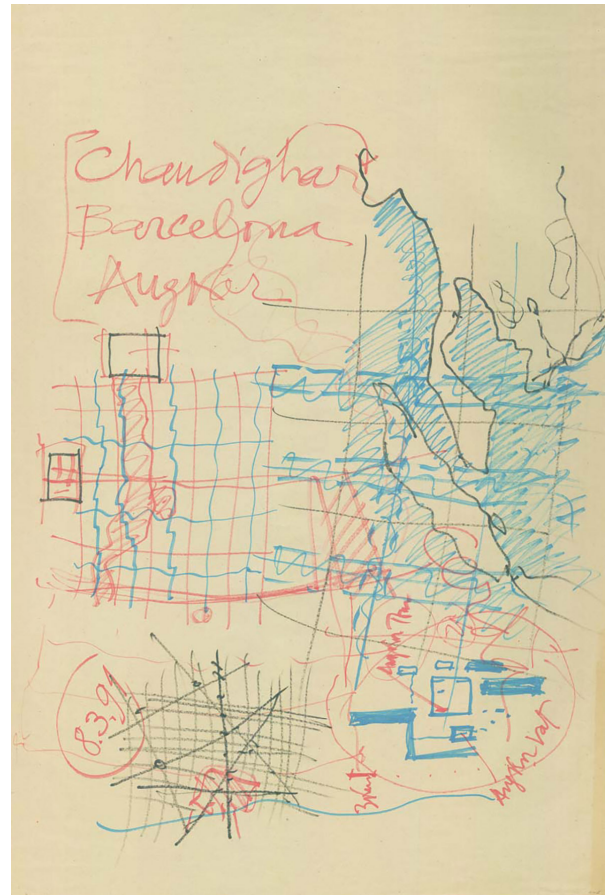 Chandighar
Barcelona
Angkor
Angkor Thom
8.3.91
Angkor Vat